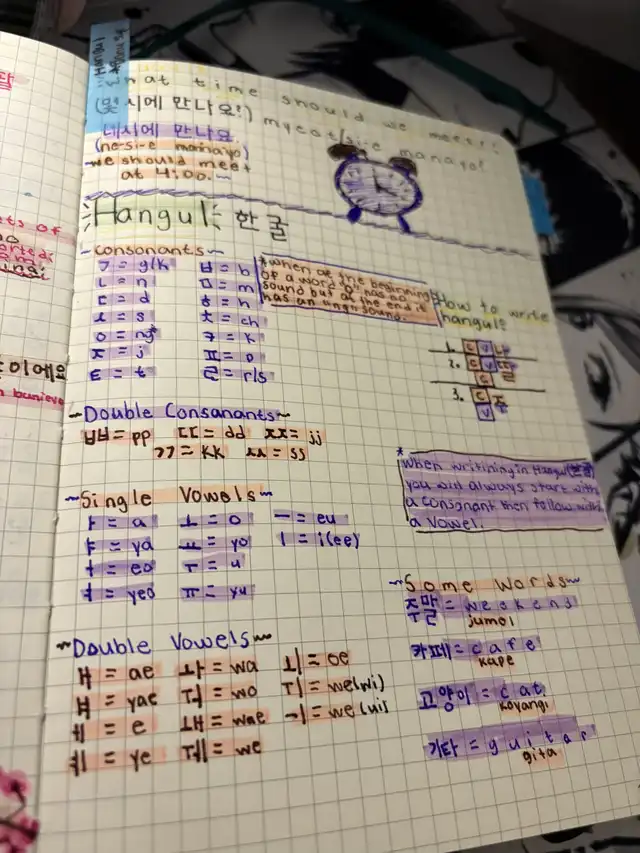 Hangul
what time should we meet?
(몇시에 만나요?) mycot/si-e manayo?
네시에 만나요
(ne-si-e mannaiyo)
we should meet
at 4:00.
Hangul 한굴
~consonants~
ㄱ = g/k ㅂ = b
ㄴ = n ㅁ = m
ㄷ = d ㅎ = h
ㅅ = s ㅊ = ch
ㅇ = ng* ㅋ = k
ㅈ = j ㅍ = p
ㅌ = t ㄹ = r/s
*when at the beginning
of a word 'o' has no
sound but at the end it
has an ung sound.
How to write
hangul?
1. C V 나
2. C V
C
3. C 주
V
~Double Consanants~
ㅃ = pp ㄸ = dd ㅉ = jj
ㄲ = kk ㅆ = ss
*
when writining in Hangul(한굴)
you will always start with
a consonant then follow with
a vowel.
~Single Vowels~
ㅏ = a ㅗ = o ㅡ = eu
ㅑ = ya ㅛ = yo ㅣ = i(ee)
ㅓ = eo ㅜ = u
ㅕ = yeo ㅠ = yu
~Double Vowels~
ㅐ = ae ㅘ = wa ㅚ = oe
ㅒ = yae ㅝ = wo ㅟ = we(wi)
ㅔ = e ㅙ = wae ㅢ = we(ui)
ㅖ = ye ㅞ = we
~Some words~
주말 = weekens
jumol
카페 = cafe
kape
고양이 = cat
koyangi
기타 = guitar
gita
이에요